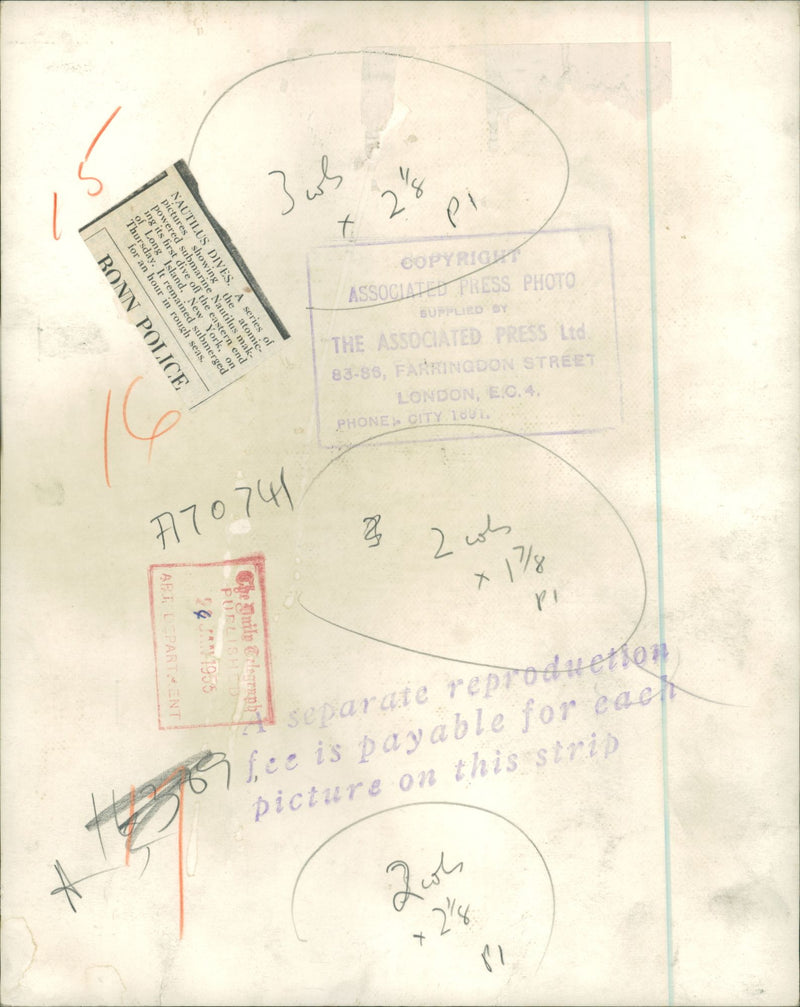 15
3 cols
x 2 1/8
P1
NAUTILUS DIVES. A series of
pictures showing the atomic-
powered submarine Nautilus mak-
ing its first dive off the eastern end
of Long Island, New York, on
Thursday. It remained submerged
for an hour in rough seas.
BONN POLICE
COPYRIGHT
ASSOCIATED PRESS PHOTO
SUPPLIED BY
THE ASSOCIATED PRESS Ltd.
83-86, FARRINGDON STREET
LONDON, E.C.4.
PHONE: CITY 1691.
16
A70741
2 cols
x 1 7/8
P1
The Daily Telegraph
PUBLISHED
JAN 1955
ART DEPARTMENT
A separate reproduction
fee is payable for each
picture on this strip
17
2 cols
x 2 1/8
P1